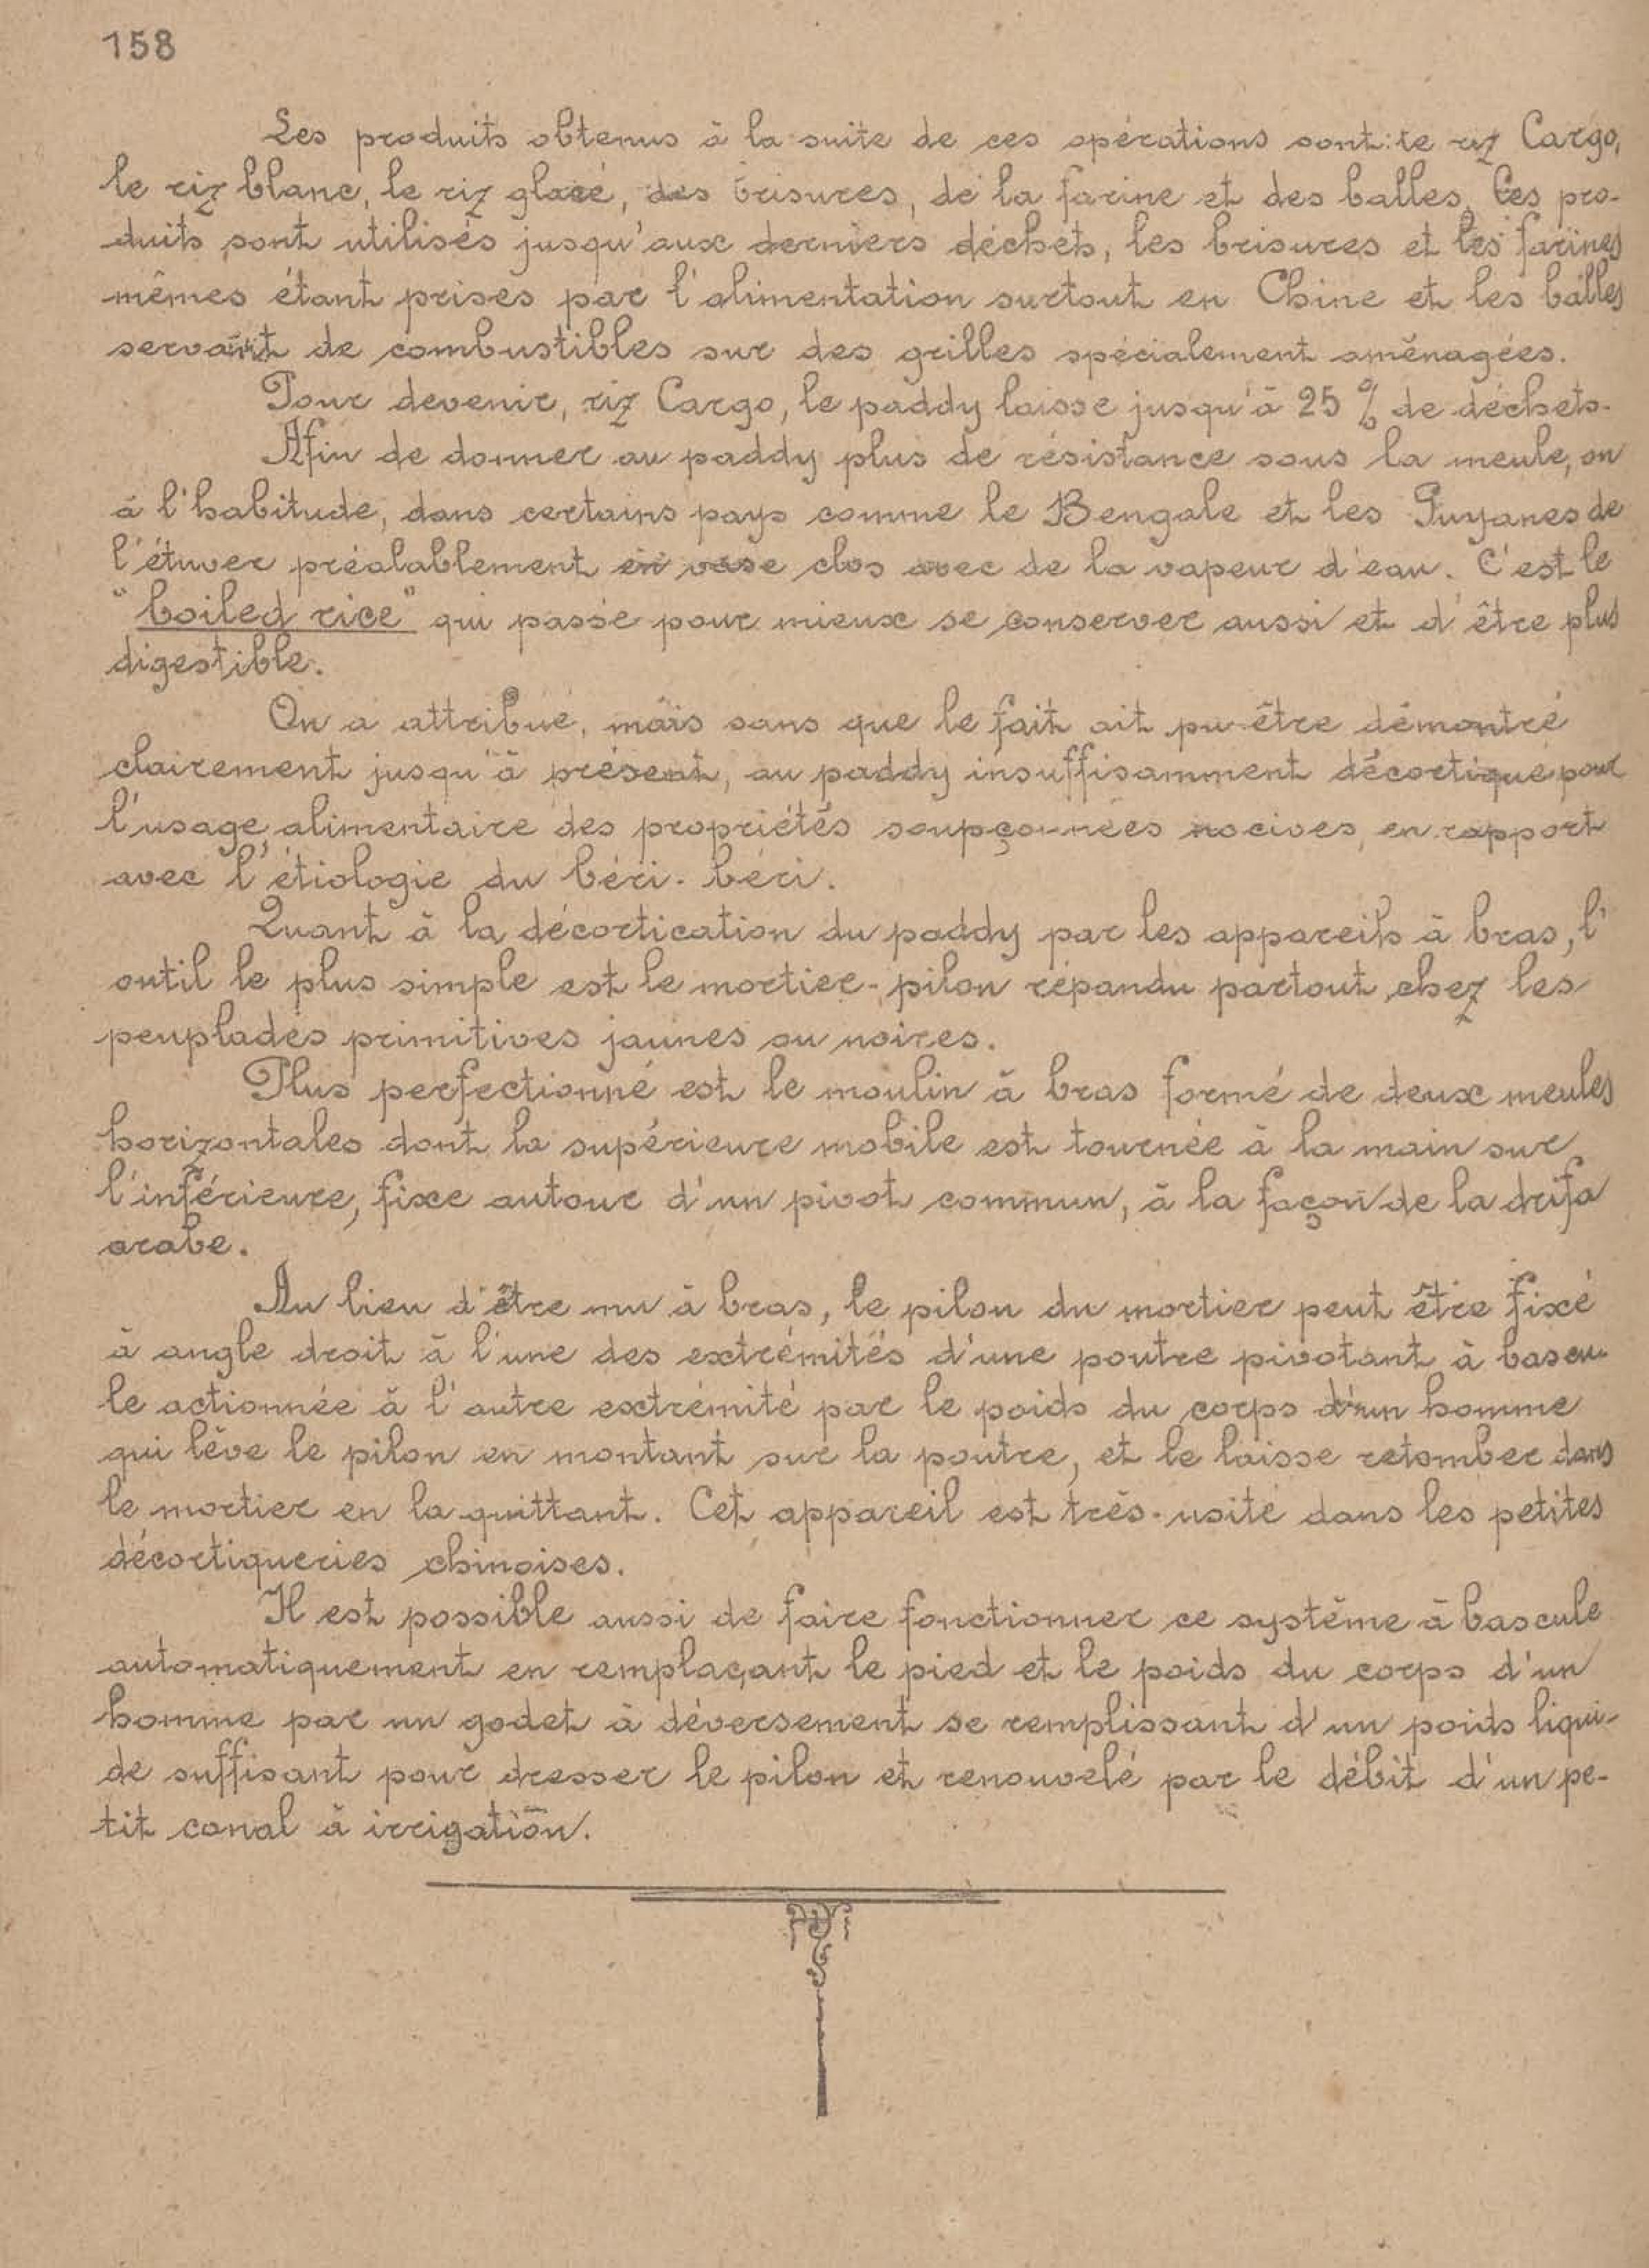 158
Les produits obtenus à la suite de ces opérations sont: le riz Cargo,
le riz blanc, le riz glacé, des brisures, de la farine et des balles. Ces pro-
duits sont utilisés jusqu'aux derniers déchets, les brisures et les farines
mêmes étant prises par l'alimentation surtout en Chine et les balles
servant de combustibles sur des grilles spécialement aménagées.
Pour devenir, riz Cargo, le paddy laisse jusqu'à 25 % de déchets.
Afin de donner au paddy plus de résistance sous la meule, on
à l'habitude, dans certains pays comme le Bengale et les Guyanes de
l'étuver préalablement en vase clos avec de la vapeur d'eau. C'est le
"boiled rice" qui passe pour mieux se conserver aussi et d'être plus
digestible.
On a attribué, mais sans que le fait ait pu être démontré
clairement jusqu'à présent, au paddy insuffisamment décortiqué pour
l'usage alimentaire des propriétés soupçonnées nocives, en rapport
avec l'étiologie du béri-béri.
Quant à la décortication du paddy par les appareils à bras, l'
outil le plus simple est le mortier-pilon répandu partout chez les
peuplades primitives jaunes ou noires.
Plus perfectionné est le moulin à bras formé de deux meules
horizontales dont la supérieure mobile est tournée à la main sur
l'inférieure, fixe autour d'un pivot commun, à la façon de la drifa
arabe.
Au lieu d'être mu à bras, le pilon du mortier peut être fixé
à angle droit à l'une des extrémités d'une poutre pivotant à bascu-
le actionnée à l'autre extrémité par le poids du corps d'un homme
qui lève le pilon en montant sur la poutre, et le laisse retomber dans
le mortier en la quittant. Cet appareil est très-usité dans les petites
décortiqueries chinoises.
Il est possible aussi de faire fonctionner ce système à bascule
automatiquement en remplaçant le pied et le poids du corps d'un
homme par un godet à déversement se remplissant d'un poids liqui-
de suffisant pour dresser le pilon et renouvelé par le débit d'un pe-
tit canal à irrigation.